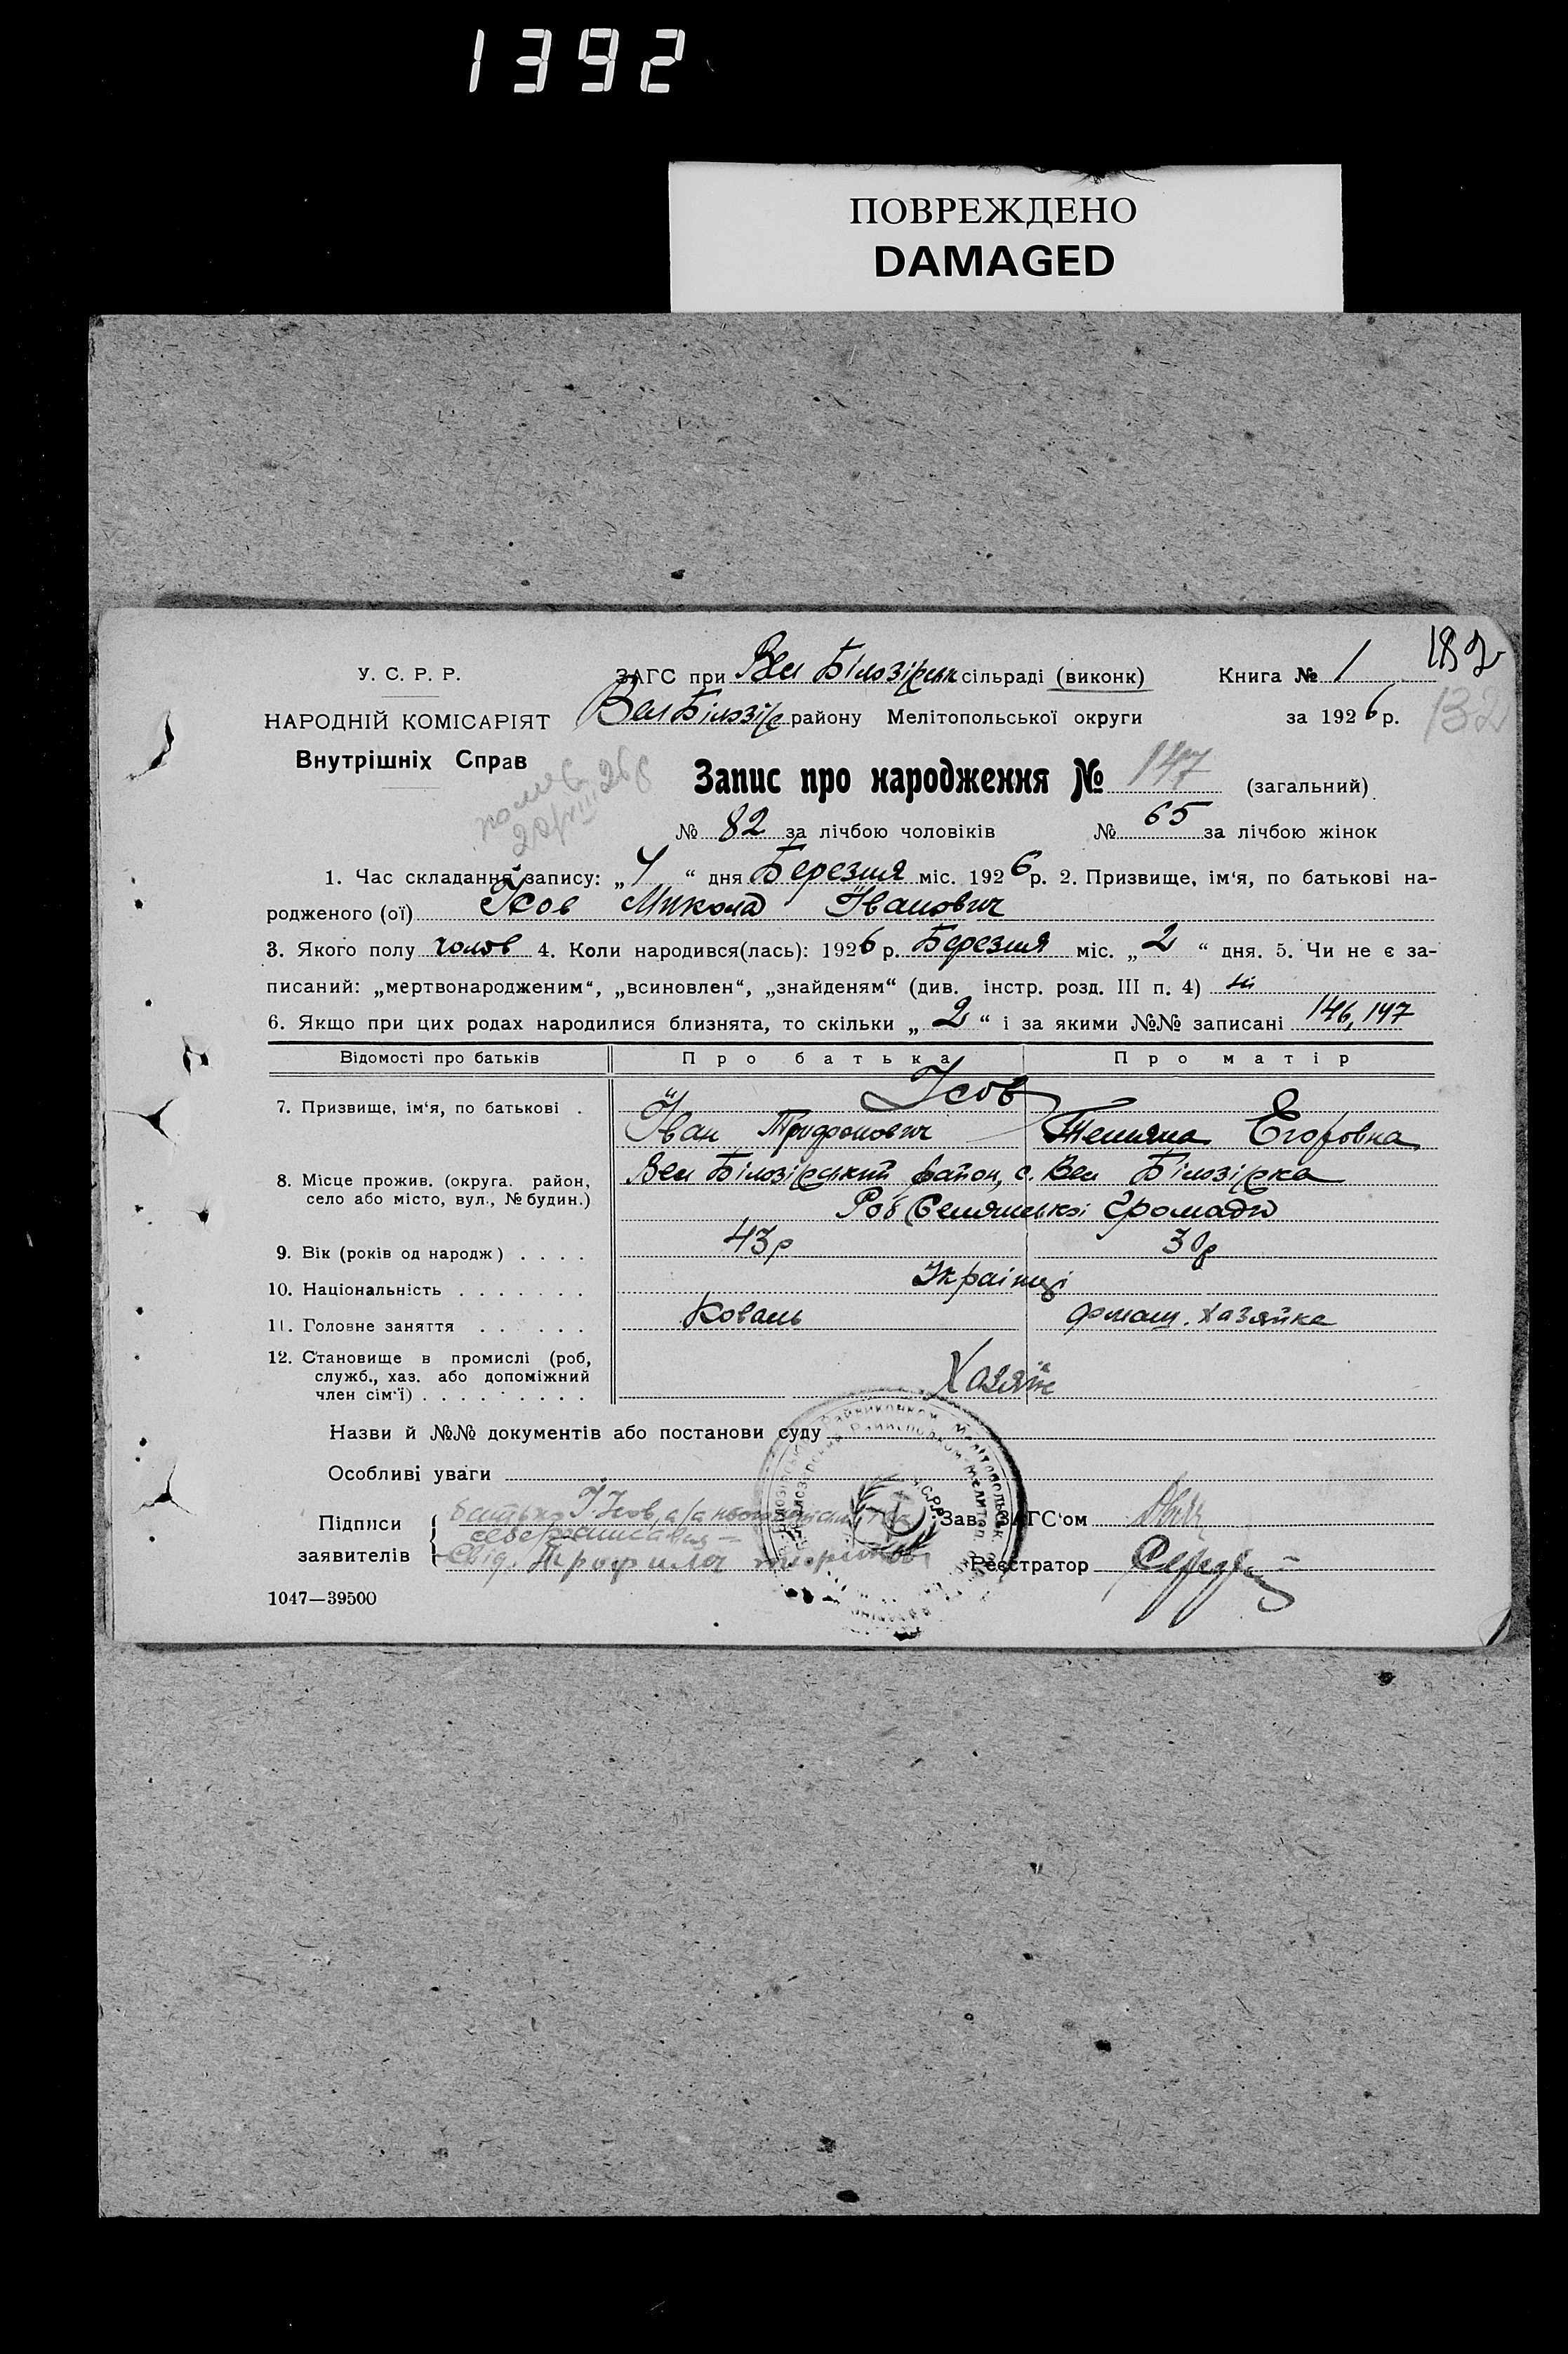 1392
ПОВРЕЖДЕНО
DAMAGED
У. С. Р. Р.
НАРОДНІЙ КОМІСАРІЯТ
Внутрішніх Справ
ЗАГС при Вел Білозірськ сільраді (виконк)
Книга № 1
182
Вел Білозір району Мелітопольської округи
за 1926 р.
132
Запис про народження № 147 (загальний)
№ 82 за лічбою чоловіків № 65 за лічбою жінок
1. Час складання запису: „4“ дня Березня міс. 1926 р. 2. Призвище, ім‘я, по батькові на-
родженого (ої) Ісов Микола Іванович
3. Якого полу чолов 4. Коли народився(лась): 1926 р. Березня міс. „2“ дня. 5. Чи не є за-
писаний: „мертвонародженим“, „всиновлен“, „знайденям“ (див. інстр. розд. III п. 4) ні
6. Якщо при цих родах народилися близнята, то скільки „2“ і за якими №№ записані 146, 147
Відомості про батьків Про батька Про матір
Ісов
7. Призвище, ім‘я, по батькові .
Іван Трифонович Тетяна Егоровна
8. Місце прожив. (округа. район,
село або місто, вул., № будин.)
Вел Білозірський район, с. Вел Білозірка
Роб Селянської Громади
9. Вік (років од народж) . . . . 43р 30р
10. Національність . . . . . . . Українці
11. Головне заняття . . . . . Коваль домаш. хазяйка
12. Становище в промислі (роб,
служб., хаз. або допоміжний
член сім‘ї) . . . . . . . . .
Хазяїн
Назви й №№ документів або постанови суду
Особливі уваги
Підписи
заявителів
батько І Ісов, а за
Свід. Трофим
Зав. ЗАГС‘ом
Реєстратор
1047—39500